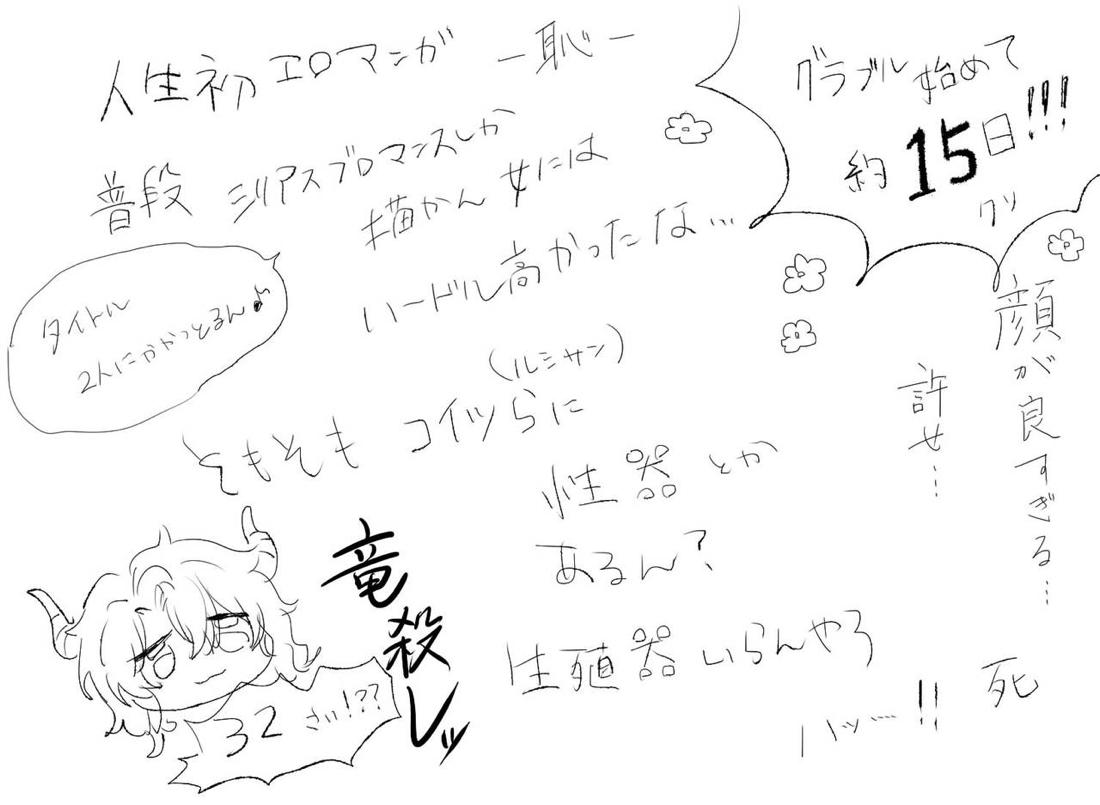 人生初エロマンガ －恥－
普段シリアスブロマンスしか
描かん女には
ハードル高かったな…
グラブル始めて
約15日!!!
クソ
顔が良すぎる…
許せ…
タイトル
2人にかかっとるん♪
(ルシサン)
そもそも コイツらに
性器とか
あるん?
生殖器いらんやろ
ハッ……!!
死
竜殺しッ
32さい!??